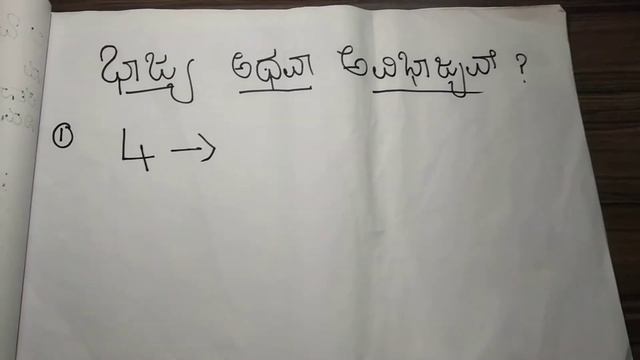 ಭಾಜ್ಯ ಅಥವಾ ಅವಿಭಾಜ್ಯವೇ ?
① 4 →